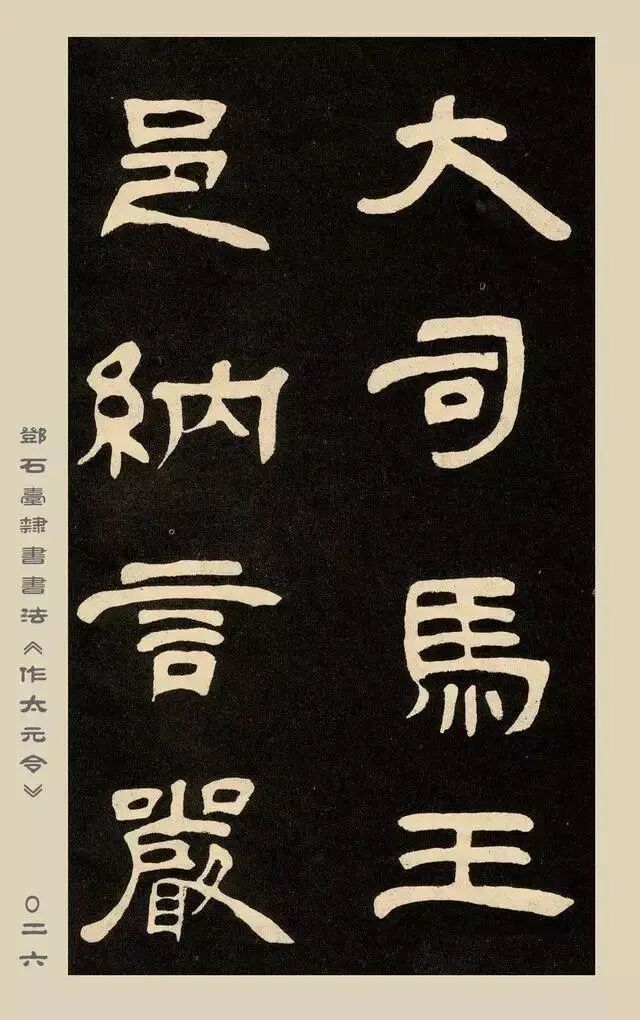 大司馬王
邑納言嚴
鄧石臺隸書書法《作太元令》
〇二六